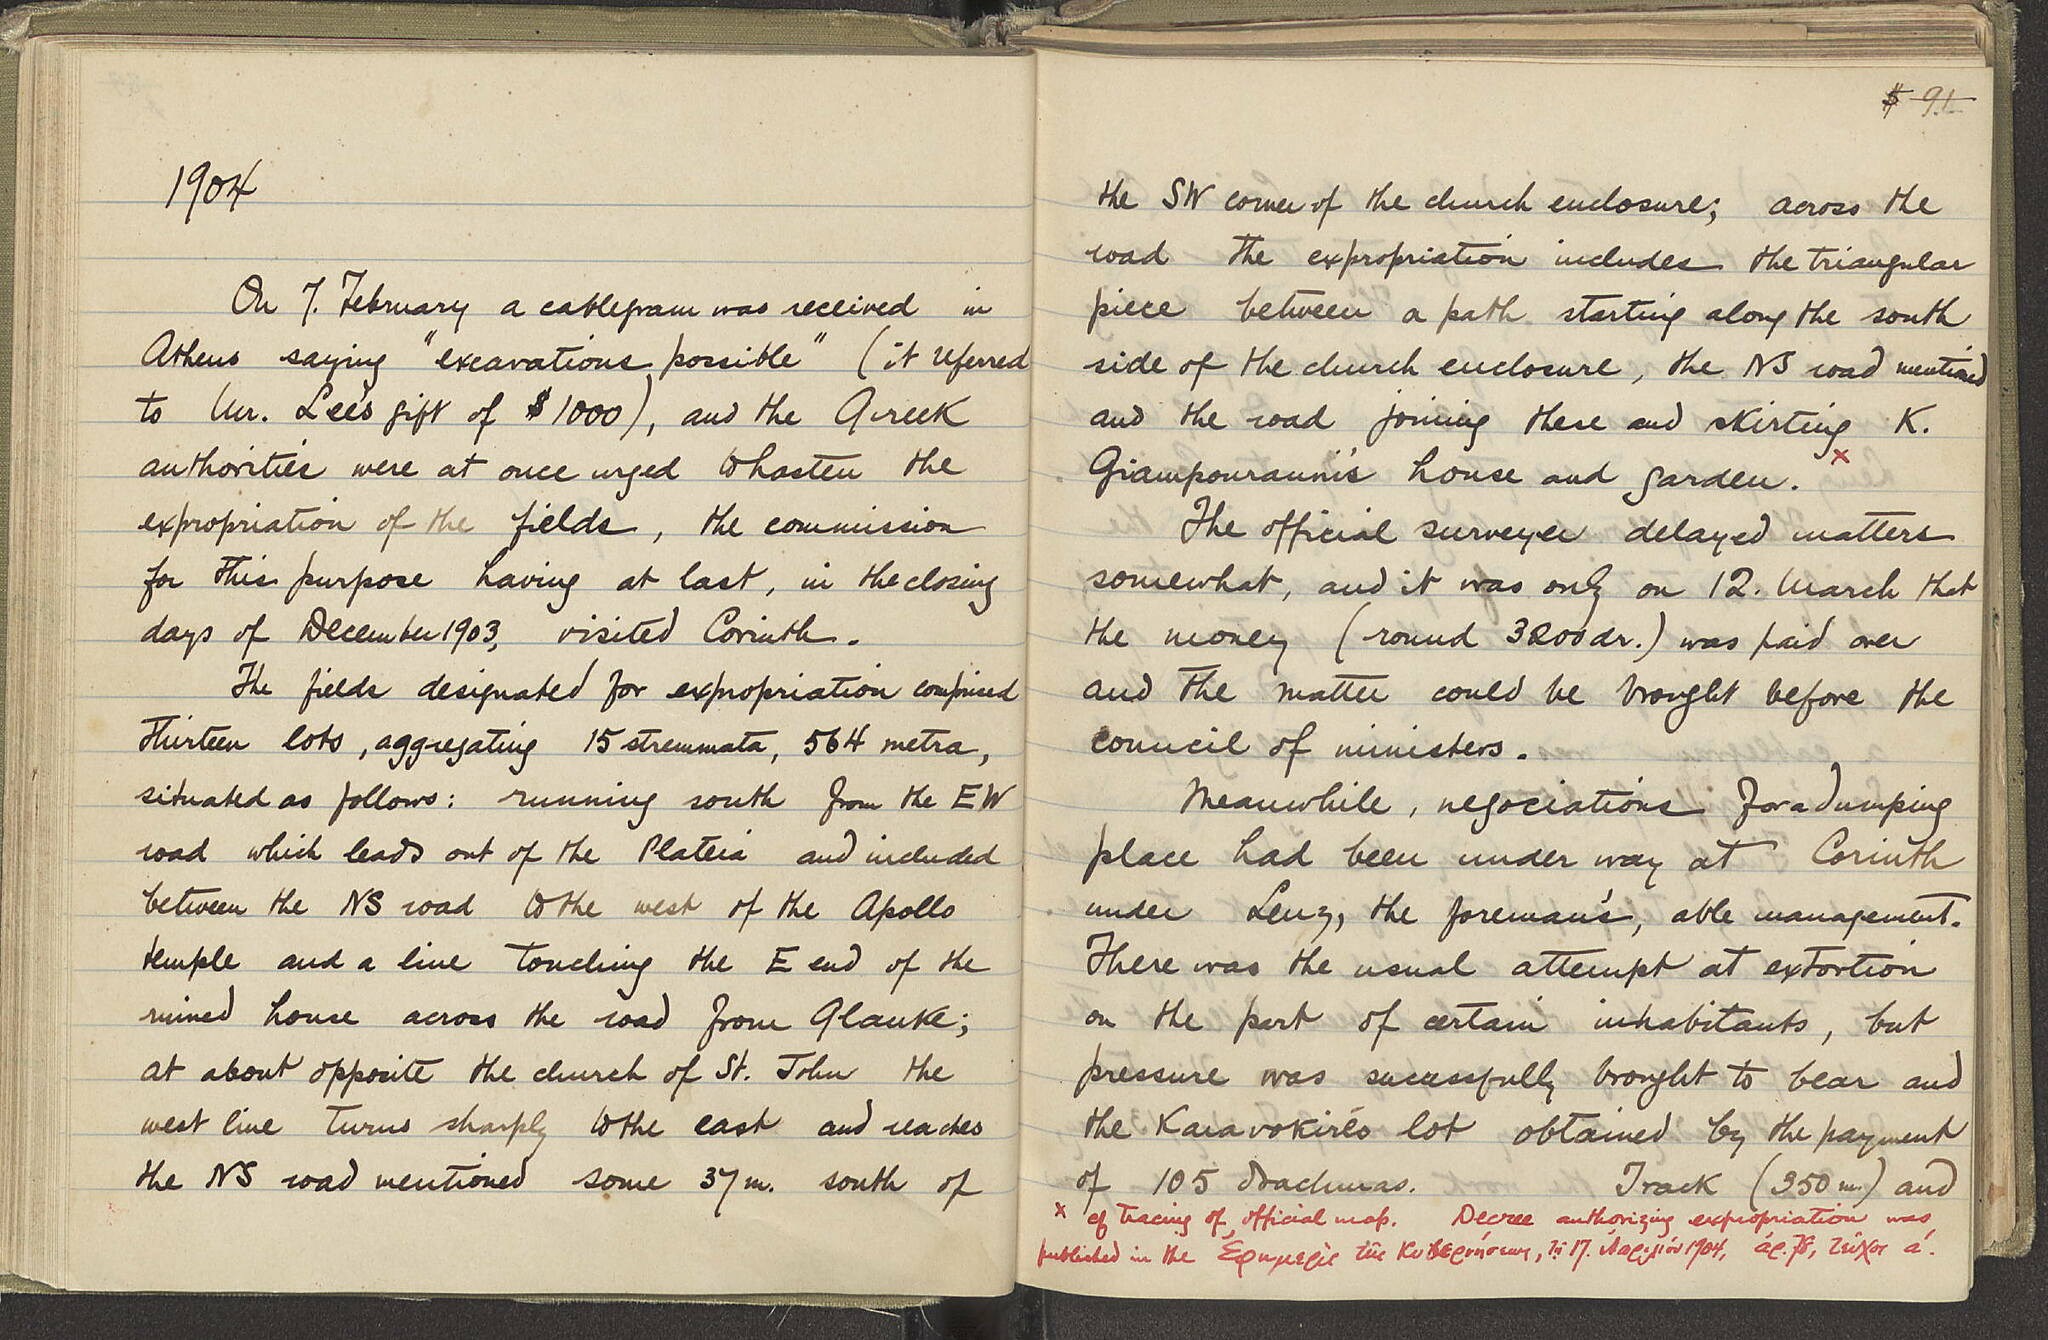 1904
On 7. February a cablegram was received in
Athens saying "excavations possible" (it referred
to Mr. Lee's gift of $1000), and the Greek
authorities were at once urged to hasten the
expropriation of the fields, the commission
for this purpose having at last, in the closing
days of December 1903, visited Corinth.
The fields designated for expropriation comprised
thirteen lots, aggregating 15 stremmata, 564 metra,
situated as follows: running south from the EW
road which leads out of the Plateia and included
between the NS road to the west of the Apollo
temple and a line touching the E end of the
ruined house across the road from Glauke;
at about opposite the church of St. John the
west line turns sharply to the east and reaches
the NS road mentioned some 37 m. south of
$ 91
the SW corner of the church enclosure; across the
road the expropriation includes the triangular
piece between a path starting along the south
side of the church enclosure, the NS road mentioned
and the road joining these and skirting K.
Giampouranni's house and garden. x
The official surveyer delayed matters
somewhat, and it was only on 12. March that
the money (round 3200 dr.) was paid over
and the matter could be brought before the
council of ministers.
Meanwhile, negociations for a dumping
place had been under way at Corinth
under Lenz, the foreman's, able management.
There was the usual attempt at extortion
on the part of certain inhabitants, but
pressure was sucessfully brought to bear and
the Karavokirès lot obtained by the payment
of 105 drachmas. Track (350 m.) and
x cf tracing of official map. Decree authorizing expropriation was
published in the Ἐφημερὶς τῆς Κυβερνήσεως, τῇ 17. Ἀπριλίου 1904, ἀρ. 78, τεῦχος ά.